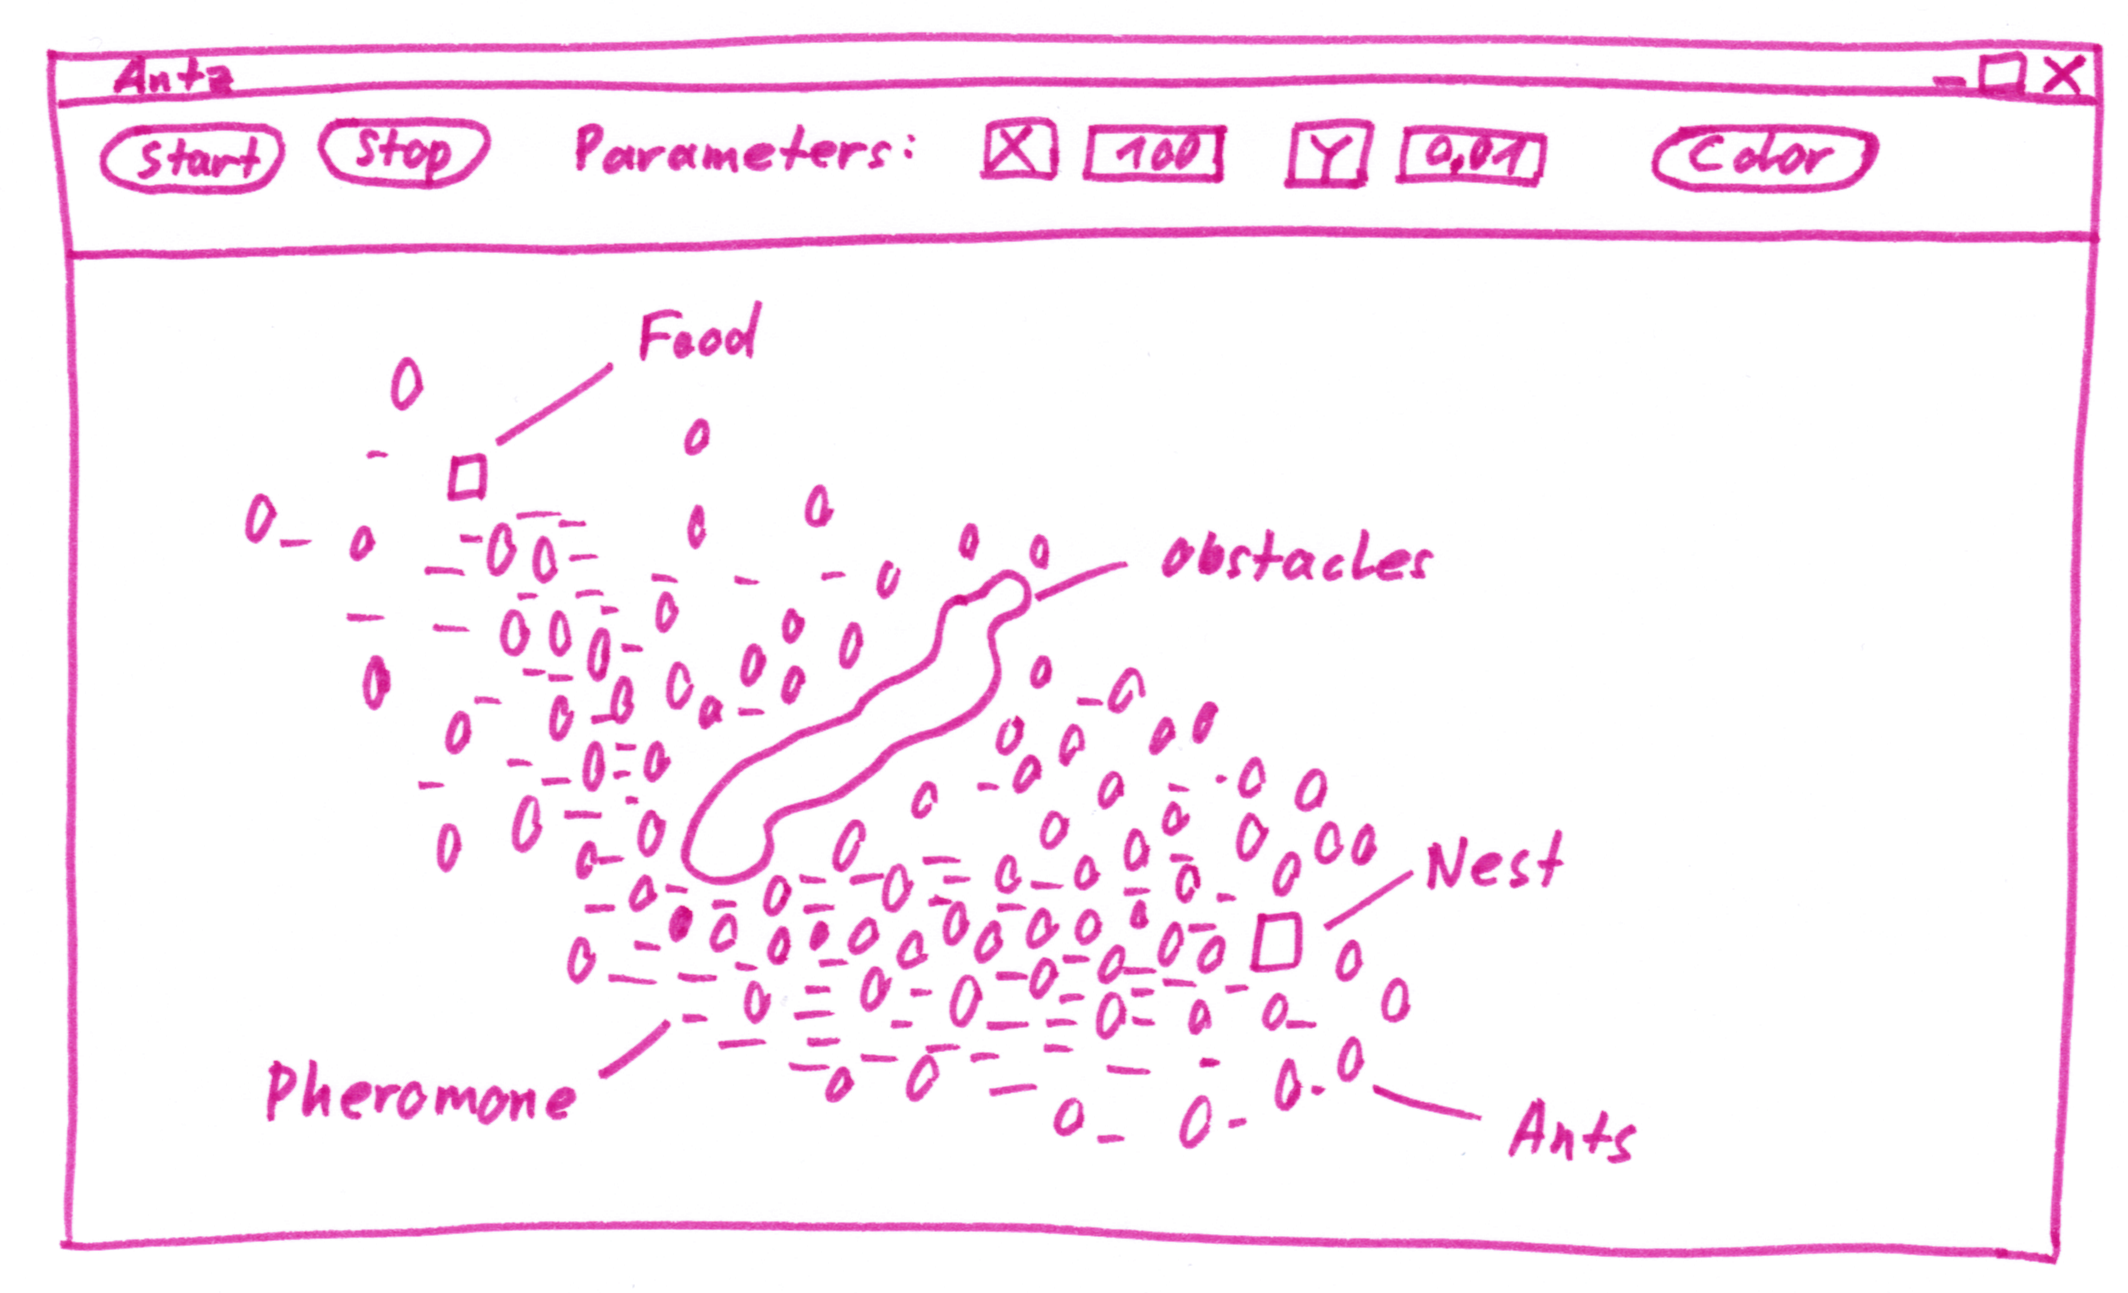 Antz
Start Stop Parameters: X 100 Y 0,01 Color
Food
Obstacles
Nest
Pheromone
Ants